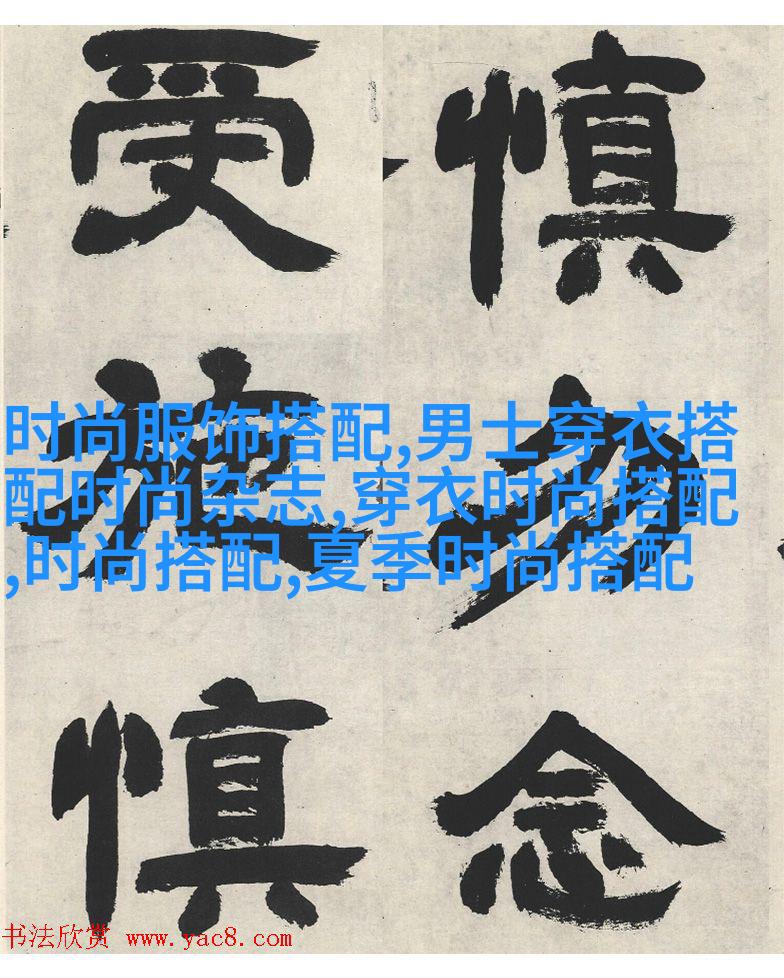 慎勿念
受施慎
时尚服饰搭配,男士穿衣搭
配时尚杂志,穿衣时尚搭配
,时尚搭配,夏季时尚搭配
书法欣赏 www.yac8.com